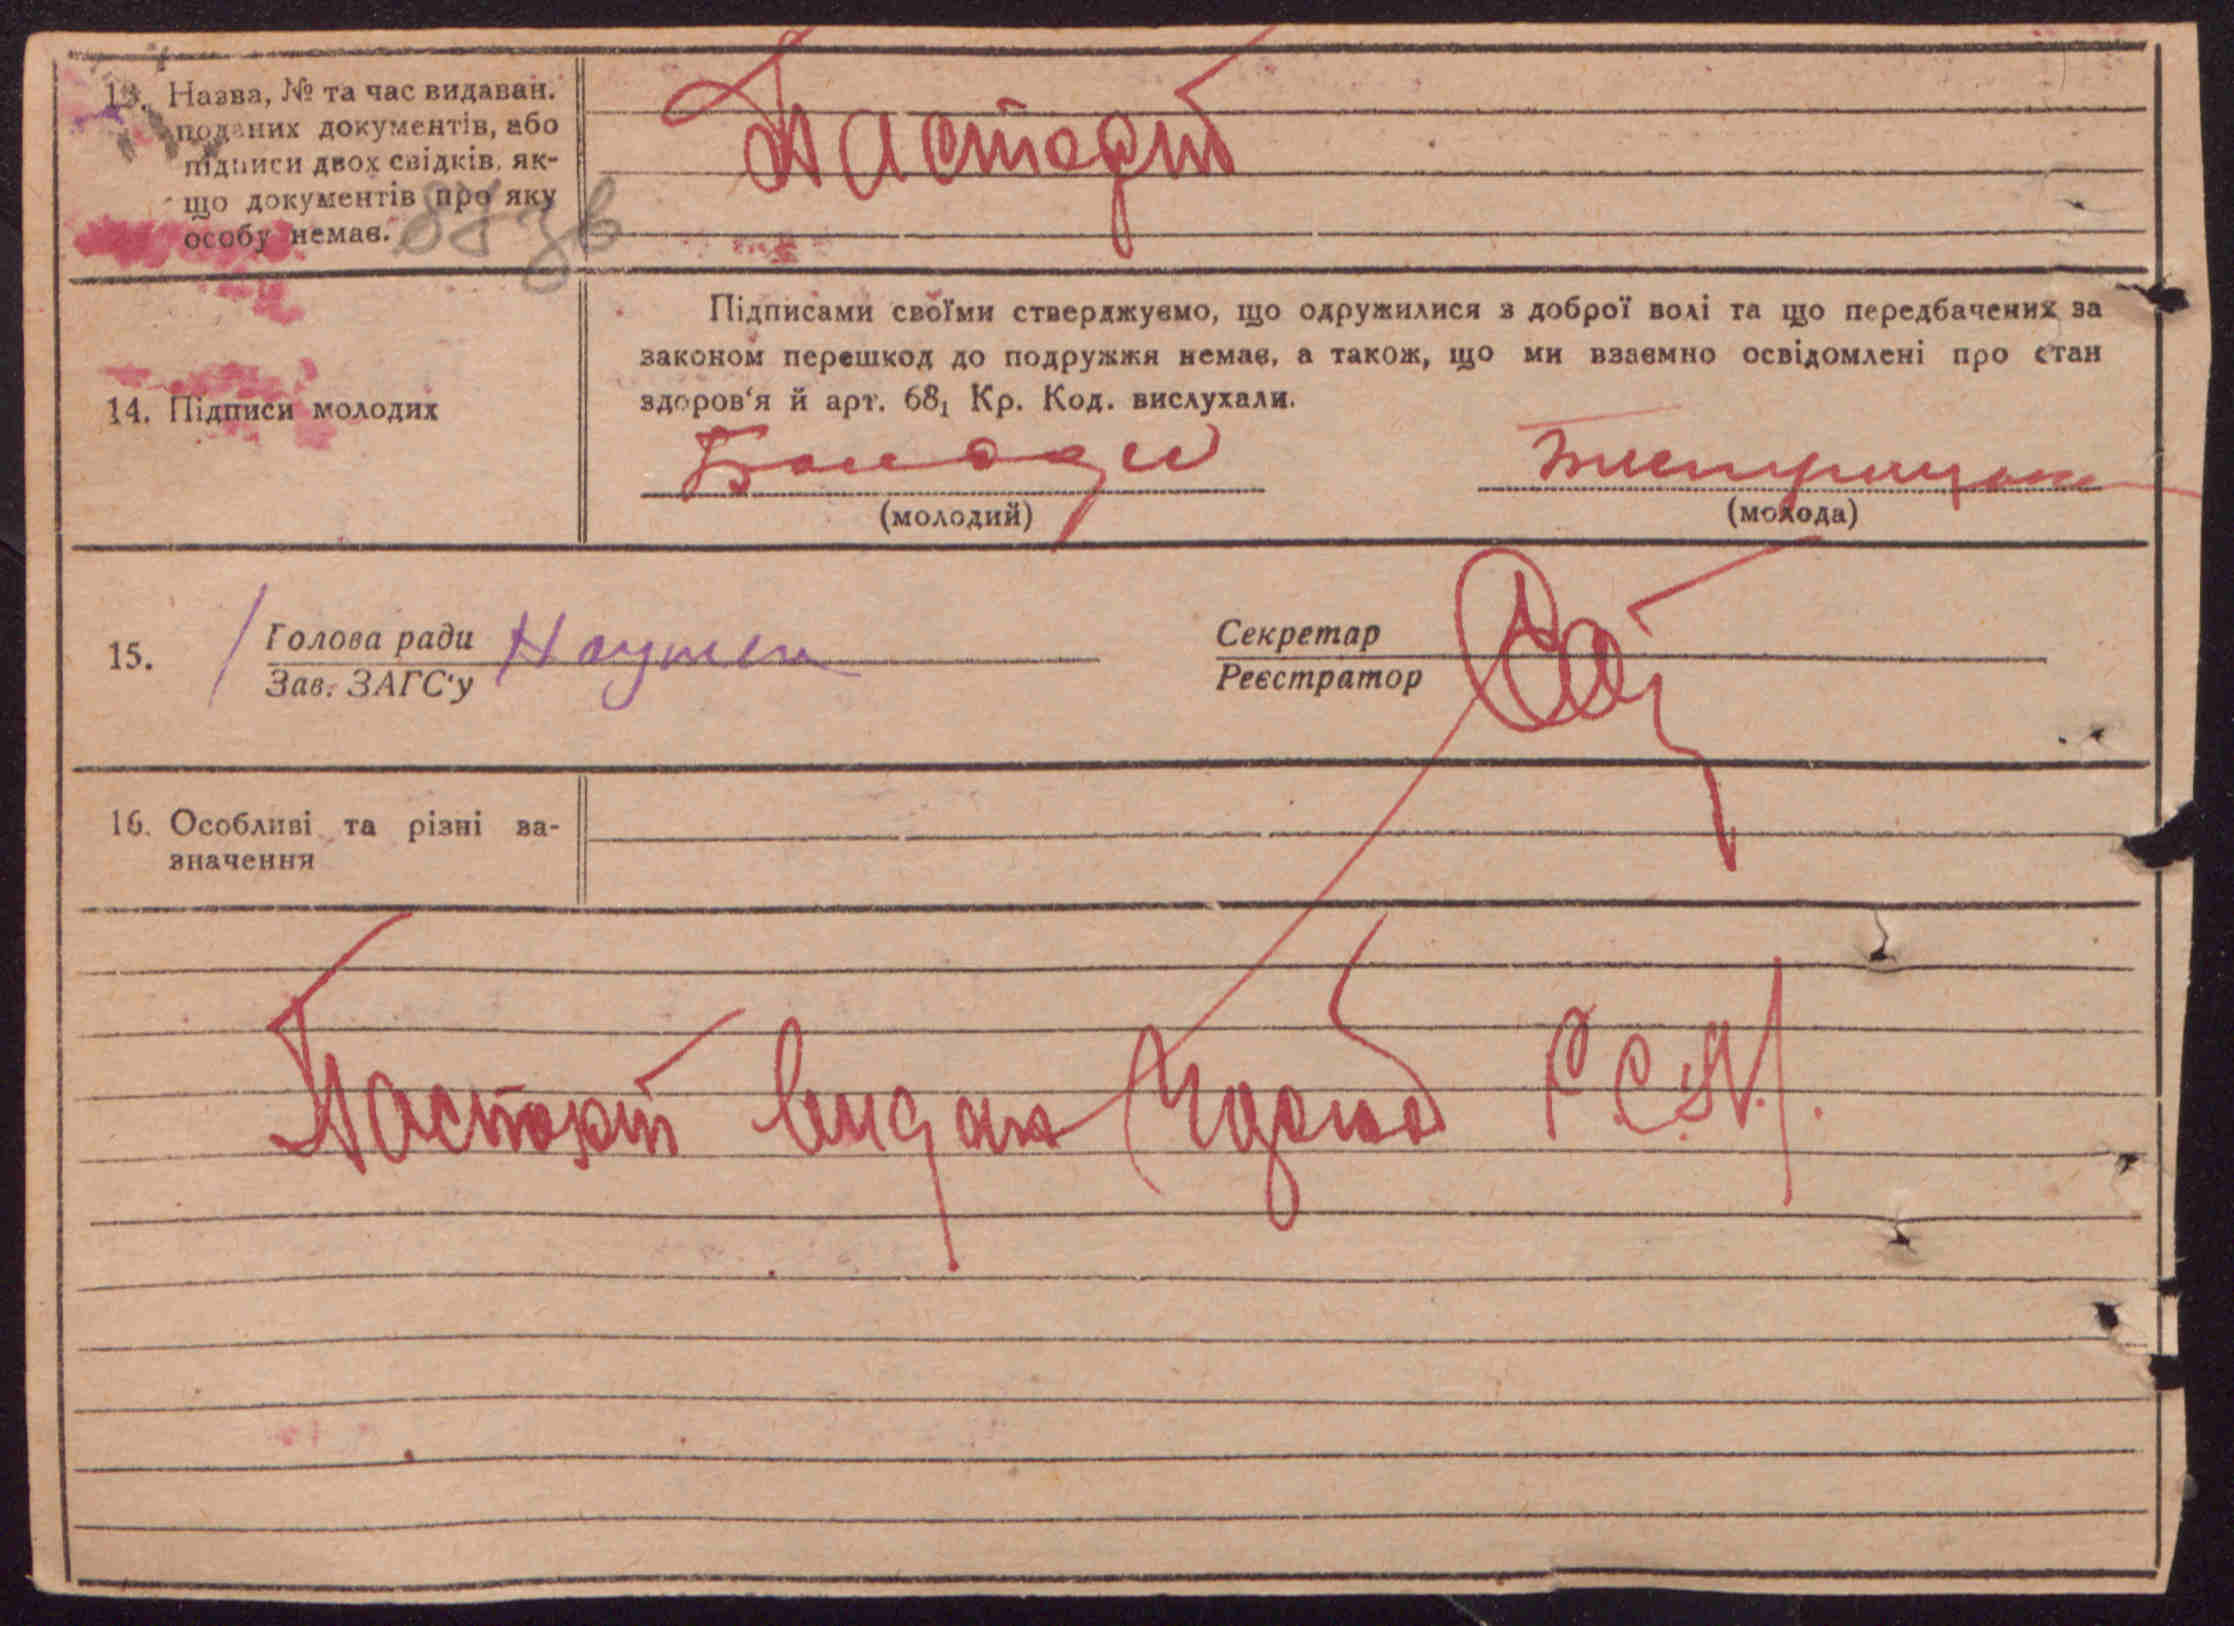 13. Назва, № та час видаван.
поданих документів, або
підписи двох свідків, як-
що документів про яку
особу немає.
Паспорт
87 зв
Підписами своїми стверджуємо, що одружилися з доброї волі та що передбачених за
законом перешкод до подружжя немає, а також, що ми взаємно освідомлені про стан
здоров'я й арт. 68₁ Кр. Код. вислухали.
14. Підписи молодих
(молодий)
(молода)
15.
Голова ради
Зав. ЗАГС'у
Секретар
Реєстратор
16. Особливі та різні за-
значення
Паспорт видан